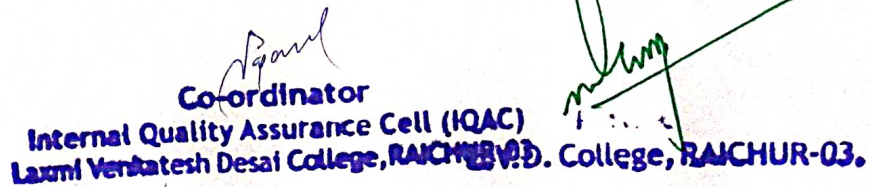 Co-ordinator
Internal Quality Assurance Cell (IQAC)
Laxmi Venkatesh Desai College, RAICHUR-03.
L.V.D. College, RAICHUR-03.